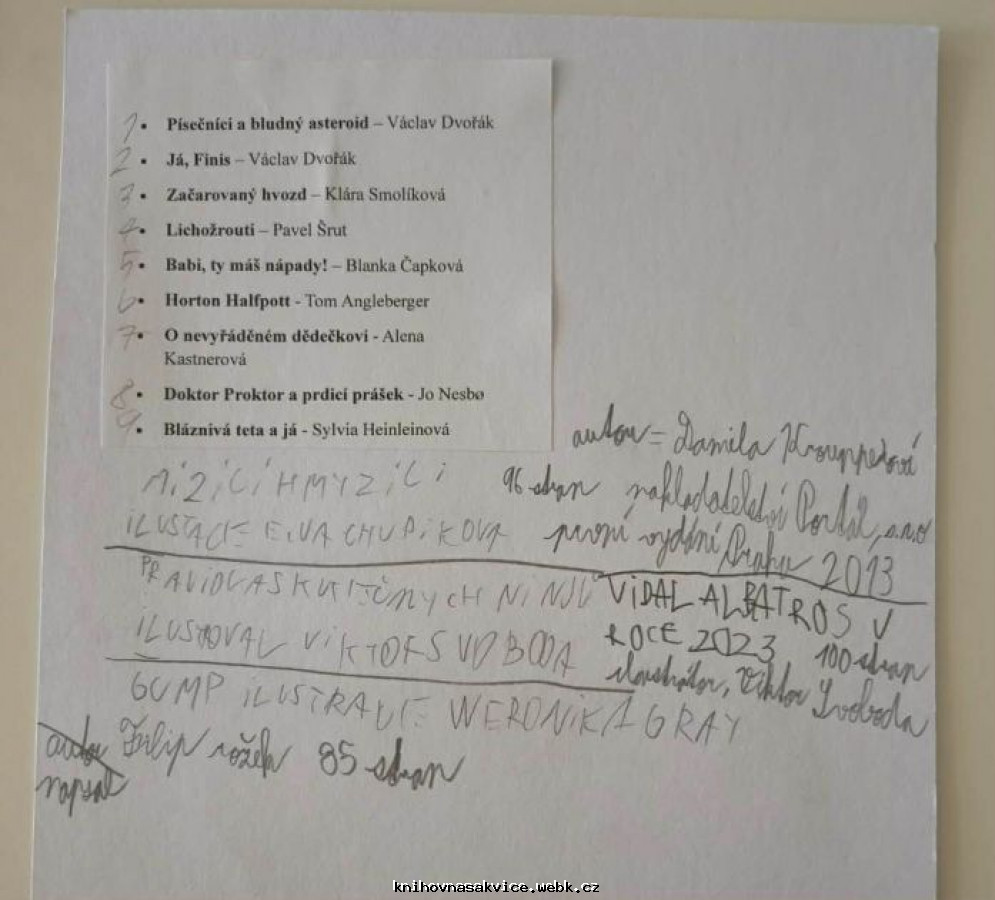 1 • Písečníci a bludný asteroid – Václav Dvořák
2 • Já, Finis – Václav Dvořák
3 • Začarovaný hvozd – Klára Smolíková
4 • Lichožrouti – Pavel Šrut
5 • Babi, ty máš nápady! – Blanka Čapková
6 • Horton Halfpott - Tom Angleberger
7 • O nevyřáděném dědečkovi - Alena
Kastnerová
8 • Doktor Proktor a prdicí prášek - Jo Nesbø
9 • Bláznivá teta a já - Sylvia Heinleinová
autor = Damila Krouppedová
MIZICI HMYZICI
96 stran nakladatelství Portál, s.r.o
ILUSTACIE EIVA CHUPIKOVA
první vydání Praha 2013
PRAVIDLA SKUTEČNYCH NINJU VIDAL ALBATROS V
ROCE 2023 100 stran
ILUSTOVAL VIKTOFS VOBODA
ilustrátor, Viktor Svoboda
GUMP ILUSTRAVE WERONIKA GRAY
autor Filip rožek 85 stran
napsal
knihovnasakvice.webk.cz